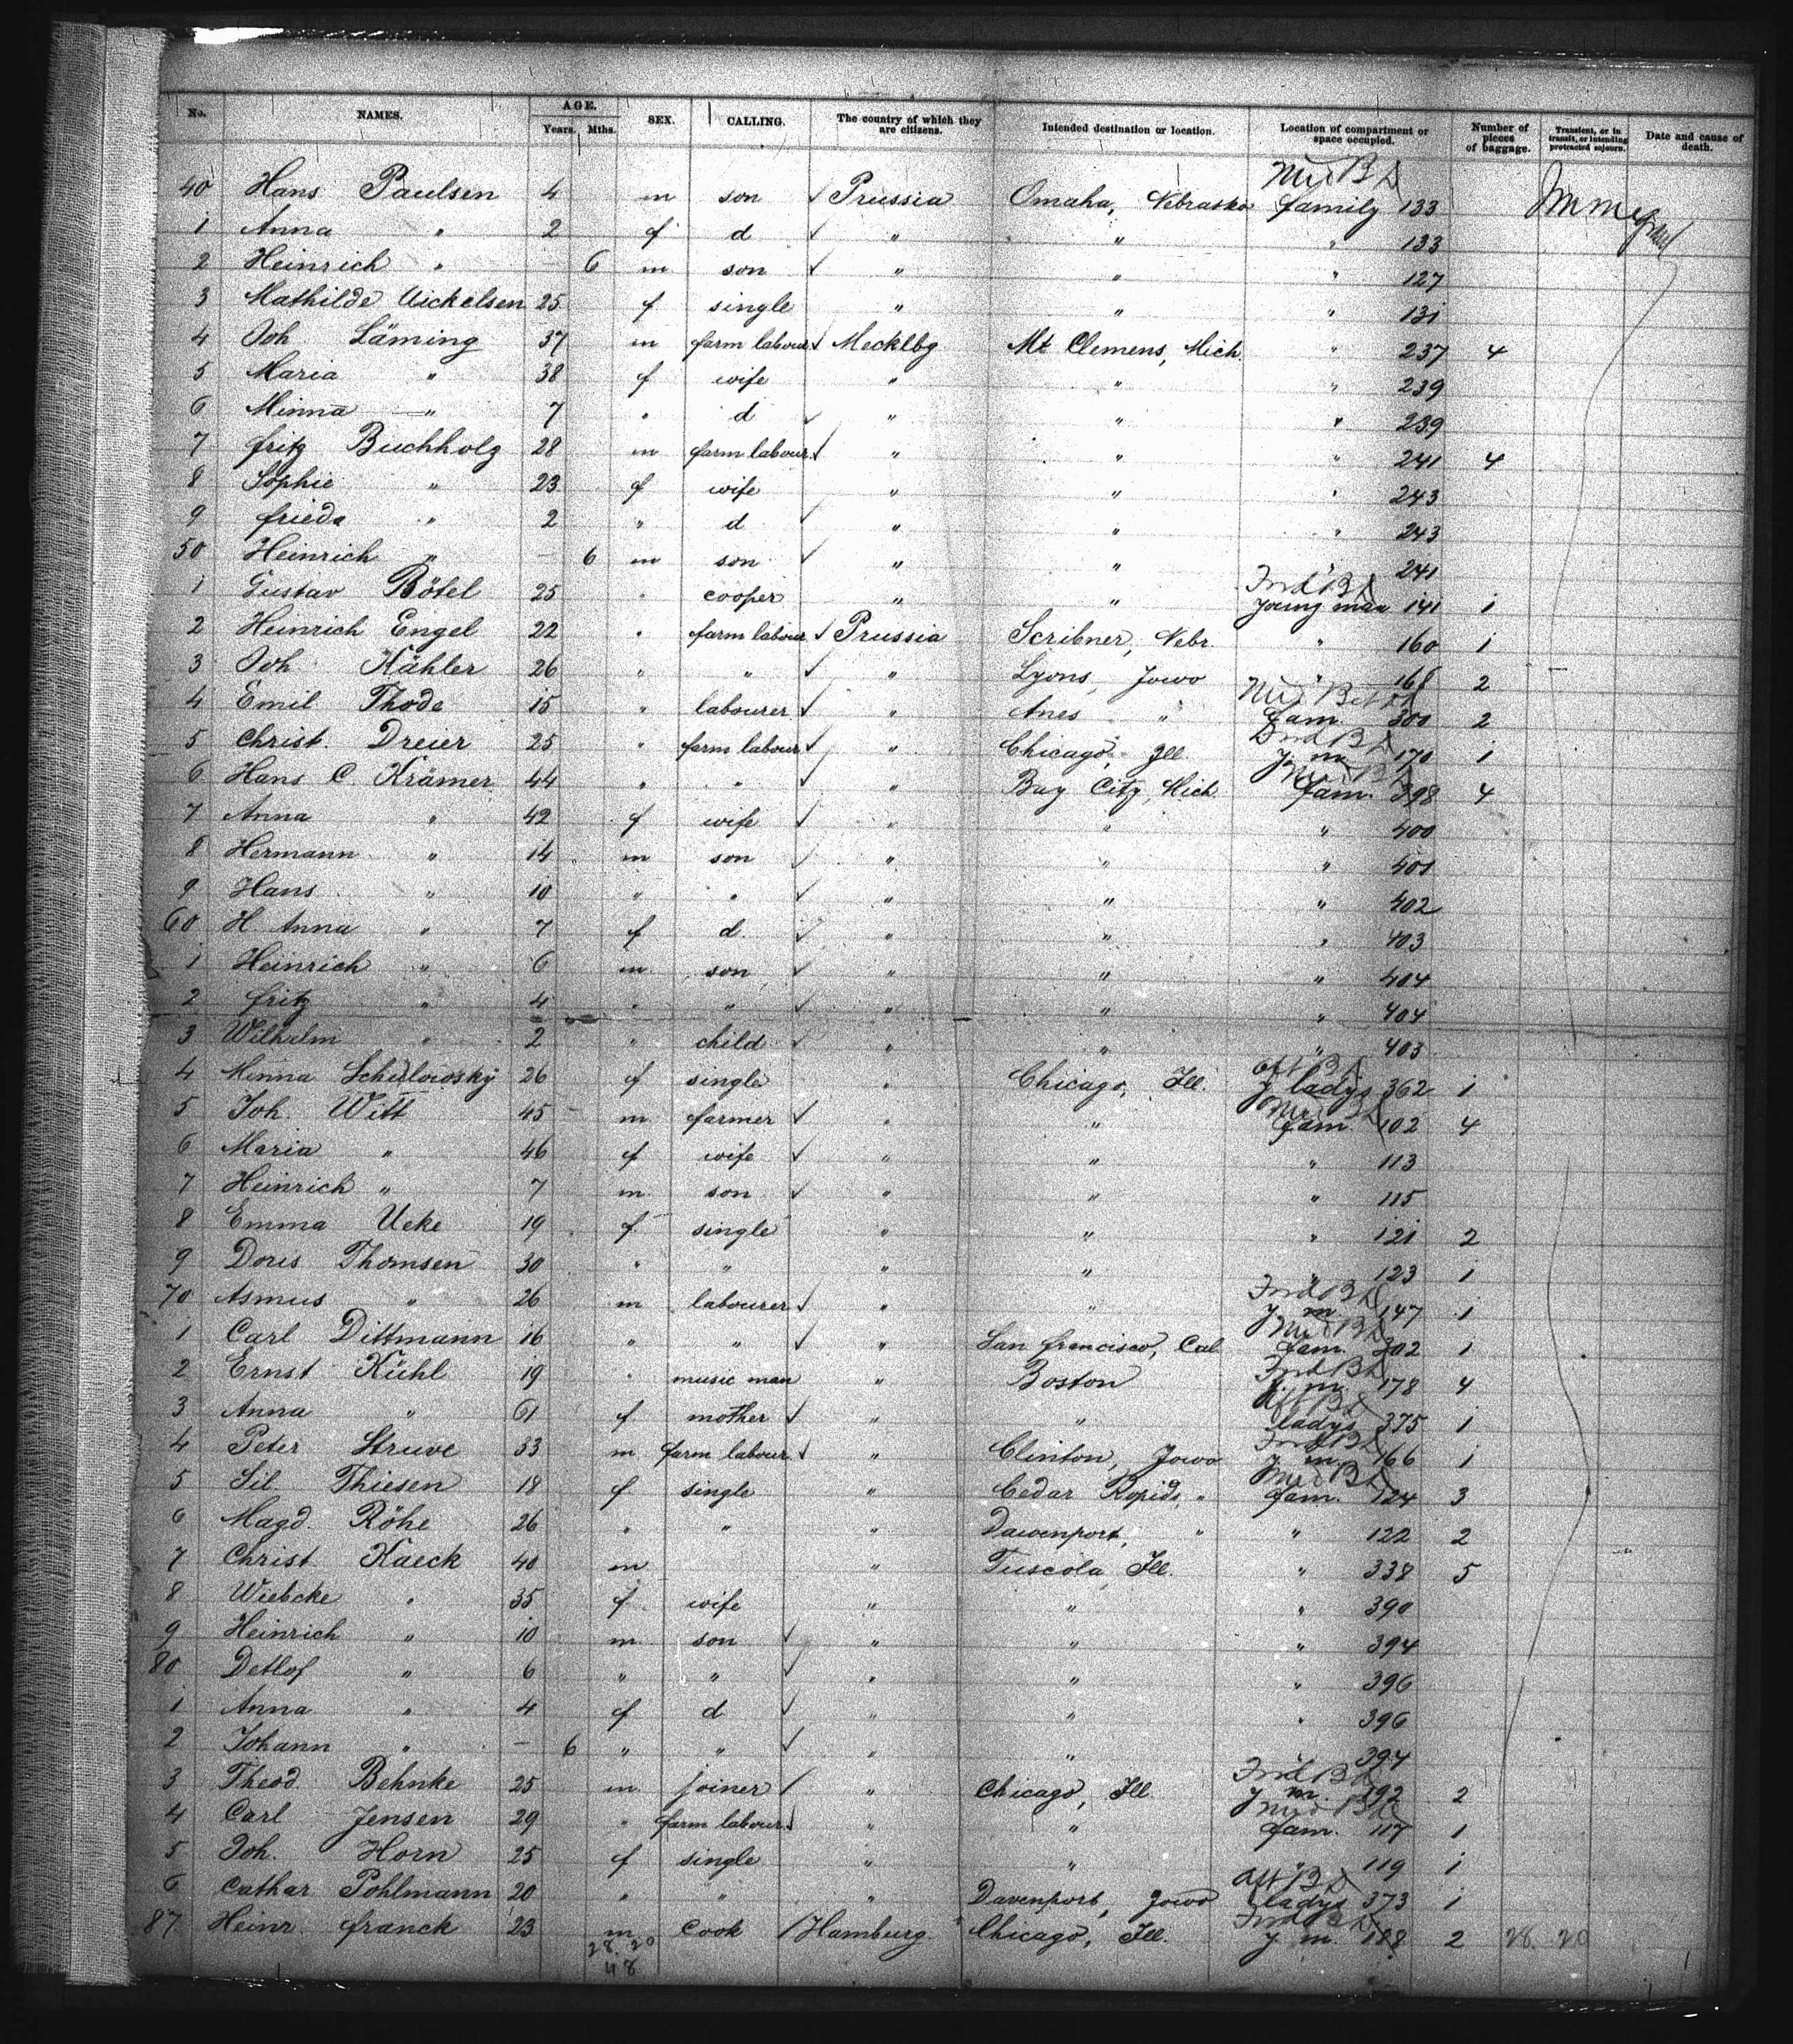 No. NAMES. AGE. Years. Mths. SEX. CALLING. The country of which they are citizens. Intended destination or location. Location of compartment or space occupied. Number of pieces of baggage. Transient, or in transit, or intending protracted sojourn. Date and cause of death.
Mid B D
40 Hans Paulsen 4 m son ✓ Prussia Omaha, Nebraska family 133
1 Anna " 2 f d ✓ " " " 133
2 Heinrich " — 6 m son ✓ " " " 127
3 Mathilde Uickelsen 25 f single " " " 131
4 Joh Läming 37 m farm labour ✓ Mecklbg Mt Clemens, Mich " 237 4
5 Maria " 38 f wife " " " 239
6 Minna " 7 " d ✓ " " " 239
7 fritz Buchholz 28 m farm labour ✓ " " " 241 4
8 Sophie " 23 f wife " " " 243
9 frieda " 2 " d ✓ " " " 243
50 Heinrich " — 6 m son ✓ " " " 241
1 Gustav Bötel 25 " cooper " " young man 141 1
2 Heinrich Engel 22 " farm labour ✓ Prussia Scribner, Nebr " 160 1
3 Joh. Kähler 26 " " ✓ " Lyons, Jowo " 168 2
4 Emil Thode 15 " labourer ✓ " Anes " fam. 300 2
5 Christ. Dreier 25 " farm labour ✓ " Chicago, Ill. y m 170 1
6 Hans C. Krämer 44 " " ✓ " Bay City, Mich. fam. 398 4
7 Anna " 42 f wife ✓ " " " 400
8 Hermann " 14 m son ✓ " " " 401
9 Hans " 10 " " ✓ " " " 402
60 H. Anna " 7 f d. ✓ " " " 403
1 Heinrich " 6 m son ✓ " " " 404
2 fritz " 4 " " ✓ " " " 404
3 Wilhelm " 2 " child ✓ " " " 403
4 Minna Schulowsky 26 f single " Chicago, Ill. y ladys 362 1
5 Joh. Witt 45 m farmer ✓ " " fam. 102 4
6 Maria " 46 f wife ✓ " " " 113
7 Heinrich " 7 m son ✓ " " " 115
8 Emma Ueke 19 f single " " " 121 2
9 Doris Thomsen 30 " " " " " 123 1
70 Asmus " 26 m labourer ✓ " " y m. 147 1
1 Carl Dittmann 16 " " ✓ " San francisco, Cal fam. 302 1
2 Ernst Kühl 19 " music man " Boston y. m. 178 4
3 Anna " 61 f mother ✓ " " ladys 375 1
4 Peter Struve 33 m farm labour ✓ " Clinton, Jowo y m. 166 1
5 Sil Thiesen 18 f single " Cedar Ropids, " fam. 124 3
6 Magd Röhe 26 " " " Dawenport, " " 122 2
7 Christ Kaeck 40 m " Tuscola, Ill. " 338 5
8 Wiebcke " 35 f wife " " " 390
9 Heinrich " 10 m son ✓ " " " 394
80 Detlof " 6 " " ✓ " " " 396
1 Anna " 4 f d ✓ " " " 396
2 Johann " — 6 " " ✓ " " " 394
3 Theod. Behnke 25 m joiner / " Chicago, Ill y m. 192 2
4 Carl Jensen 29 " farm labour ✓ " " fam. 117 1
5 Joh. Horn 25 f single " " " 119 1
6 Cathar Pohlmann 20 " " " Davenport, Jowo ladys 373 1
87. Heinr. franck 23 m Cook / Hamburg Chicago, Ill. y m. 188 2 28. 20
28. 20
48